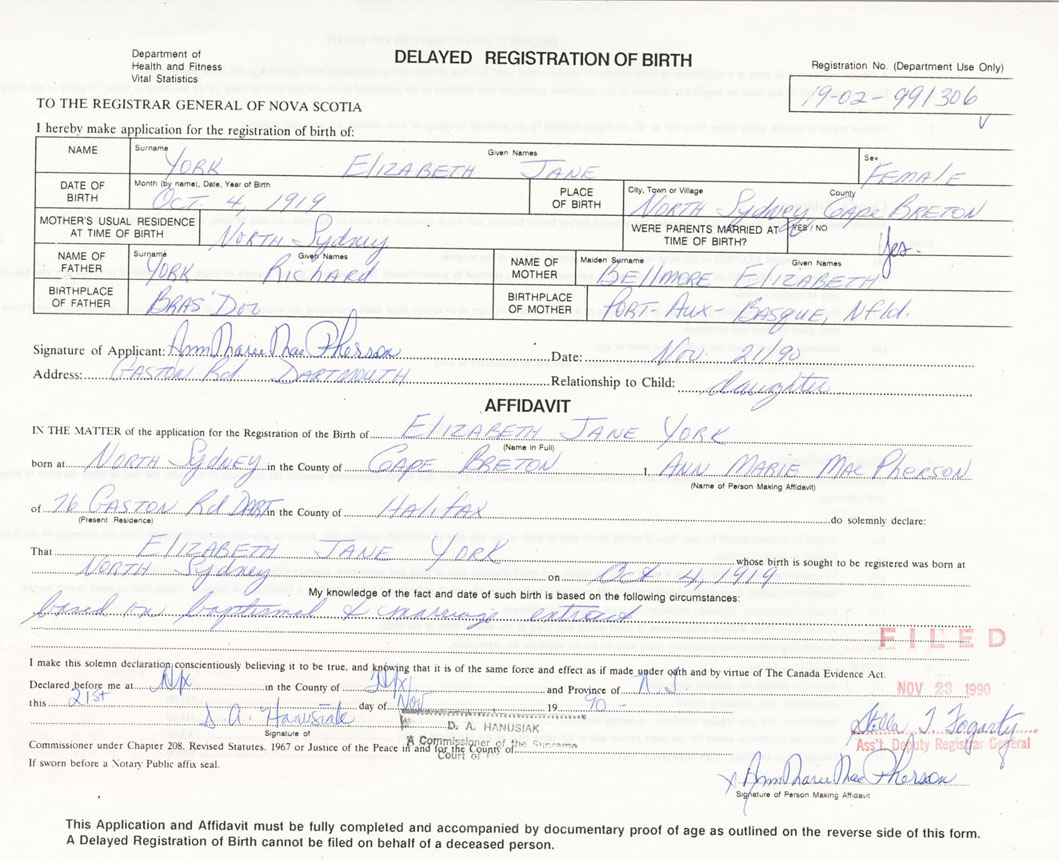 Department of
Health and Fitness
Vital Statistics
DELAYED REGISTRATION OF BIRTH
Registration No. (Department Use Only)
19-02-991306
TO THE REGISTRAR GENERAL OF NOVA SCOTIA
I hereby make application for the registration of birth of:
NAME Surname Given Names Sex
YORK ELIZABETH JANE FEMALE
DATE OF BIRTH Month (by name), Date, Year of Birth PLACE OF BIRTH City, Town or Village County
Oct. 4, 1919 NORTH Sydney CAPE BRETON
MOTHER'S USUAL RESIDENCE AT TIME OF BIRTH NORTH-Sydney WERE PARENTS MARRIED AT TIME OF BIRTH? YES / NO Yes.
NAME OF FATHER Surname Given Names NAME OF MOTHER Maiden Surname Given Names
YORK RICHARD BELLMORE ELIZABETH
BIRTHPLACE OF FATHER BRAS'DOr BIRTHPLACE OF MOTHER PORT-AUX-BASQUE, Nfld.
Signature of Applicant: Ann Marie MacPherson Date: Nov. 21/90
Address: GASTON Rd DARTMOUTH Relationship to Child: daughter
AFFIDAVIT
IN THE MATTER of the application for the Registration of the Birth of ELIZABETH JANE YORK
(Name in Full)
born at NORTH Sydney in the County of CAPE BRETON I, ANN MARIE MacPHERSON
(Name of Person Making Affidavit)
of 76 GASTON Rd DART in the County of HALIFAX do solemnly declare:
(Present Residence)
That ELIZABETH JANE YORK whose birth is sought to be registered was born at
NORTH Sydney on Oct 4, 1919
My knowledge of the fact and date of such birth is based on the following circumstances:
based on baptismal & marriage extract
FILED
I make this solemn declaration conscientiously believing it to be true, and knowing that it is of the same force and effect as if made under oath and by virtue of The Canada Evidence Act.
Declared before me at Hfx in the County of Hfx and Province of N.S.
NOV 23 1990
this 21st day of Nov 19 90
D. A. Hanusiak
D. A. HANUSIAK
Stella T Fogarty
Signature of
A Commissioner of the Supreme
Ass't. Deputy Registrar General
Commissioner under Chapter 208, Revised Statutes, 1967 or Justice of the Peace in and for the County of
Court of
If sworn before a Notary Public affix seal.
x Ann Marie MacPherson
Signature of Person Making Affidavit
This Application and Affidavit must be fully completed and accompanied by documentary proof of age as outlined on the reverse side of this form.
A Delayed Registration of Birth cannot be filed on behalf of a deceased person.